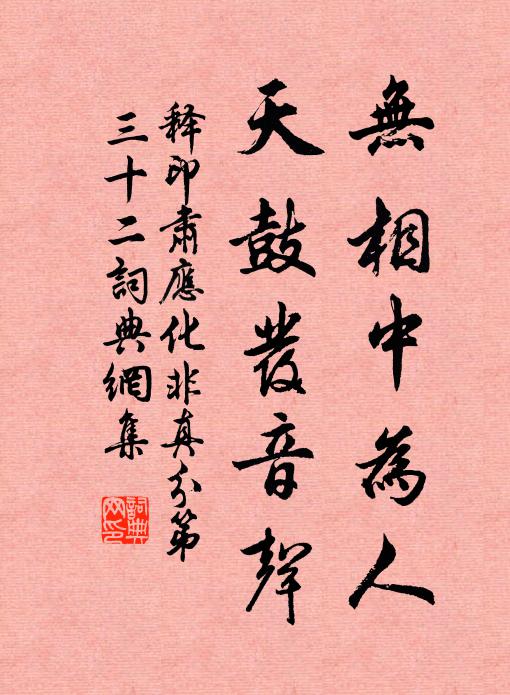 無相中為人
天鼓發音聲
释印肃應化非真分第
三十二詞典網集
詞典
网印